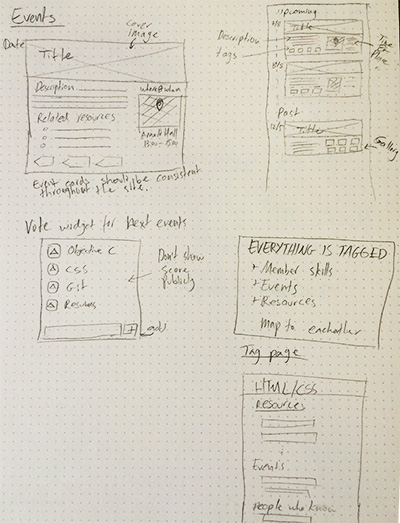 Events
cover
image
Date
Title
Description
where & when
Related resources
Event cards should be consistent
throughout the site.
Upcoming
Title
Description
tags
Time
Place
8/5
Past
12/5
Title
Gallery
Vote widget for next events
Objective C
CSS
Git
Resumes
Don't show
score
publicly
+
add
EVERYTHING IS TAGGED
+ Member skills
+ Events
+ Resources
Map to eachother
Tag page
HTML/CSS
Resources
Events
People who know